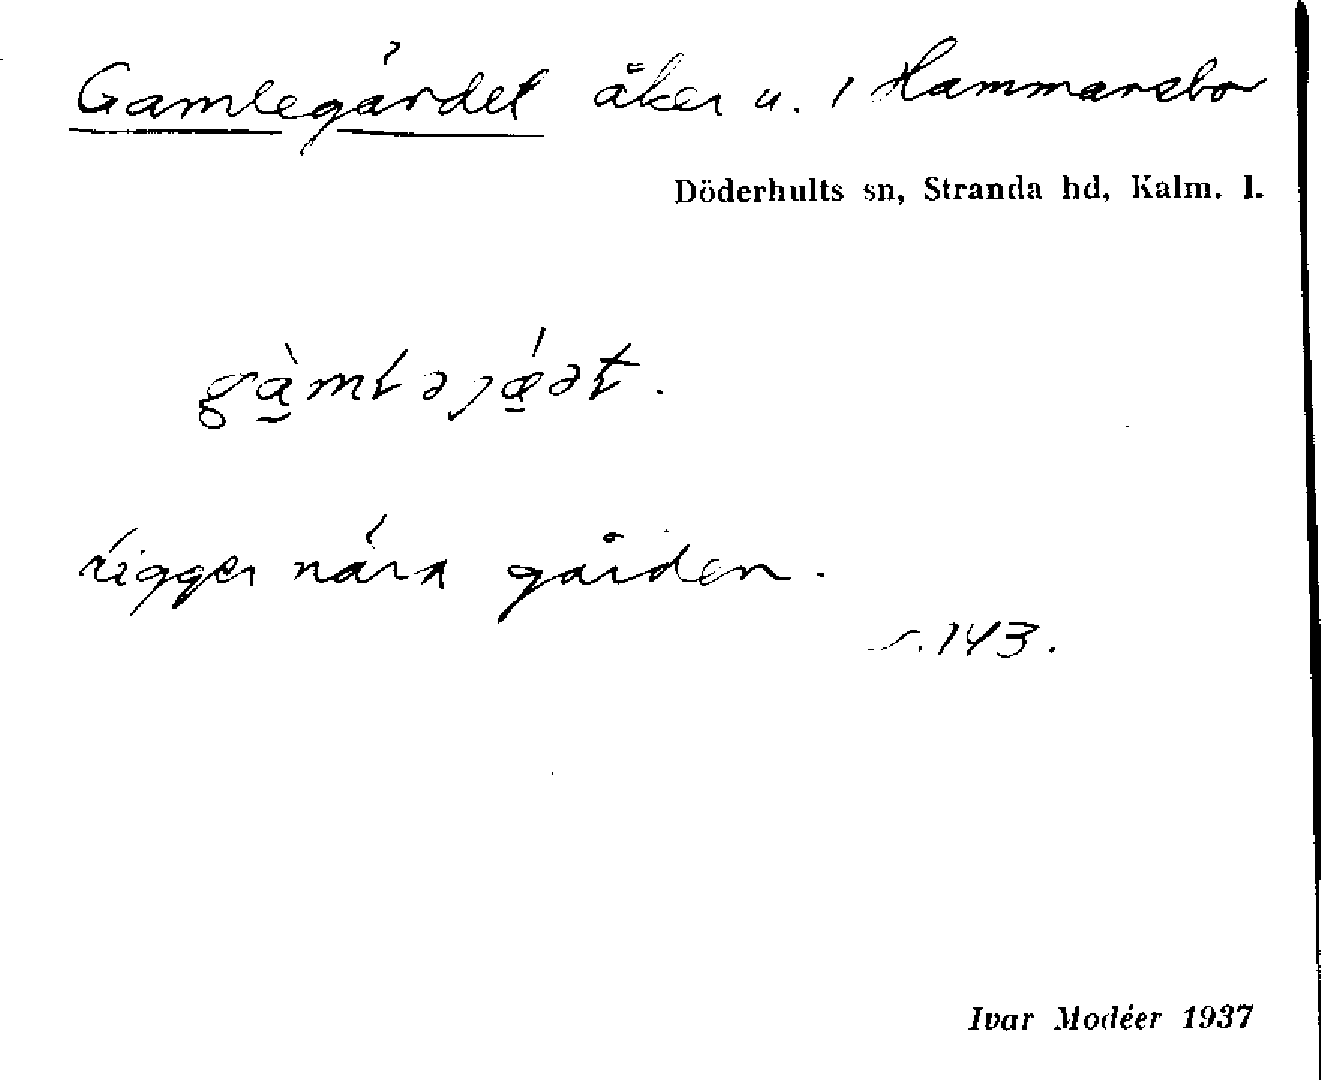 Gamlegärdet åker u. 1 Hammarsbo
Döderhults sn, Stranda hd, Kalm. l.
ligger nära gården.
s. 143.
Ivar Modéer 1937